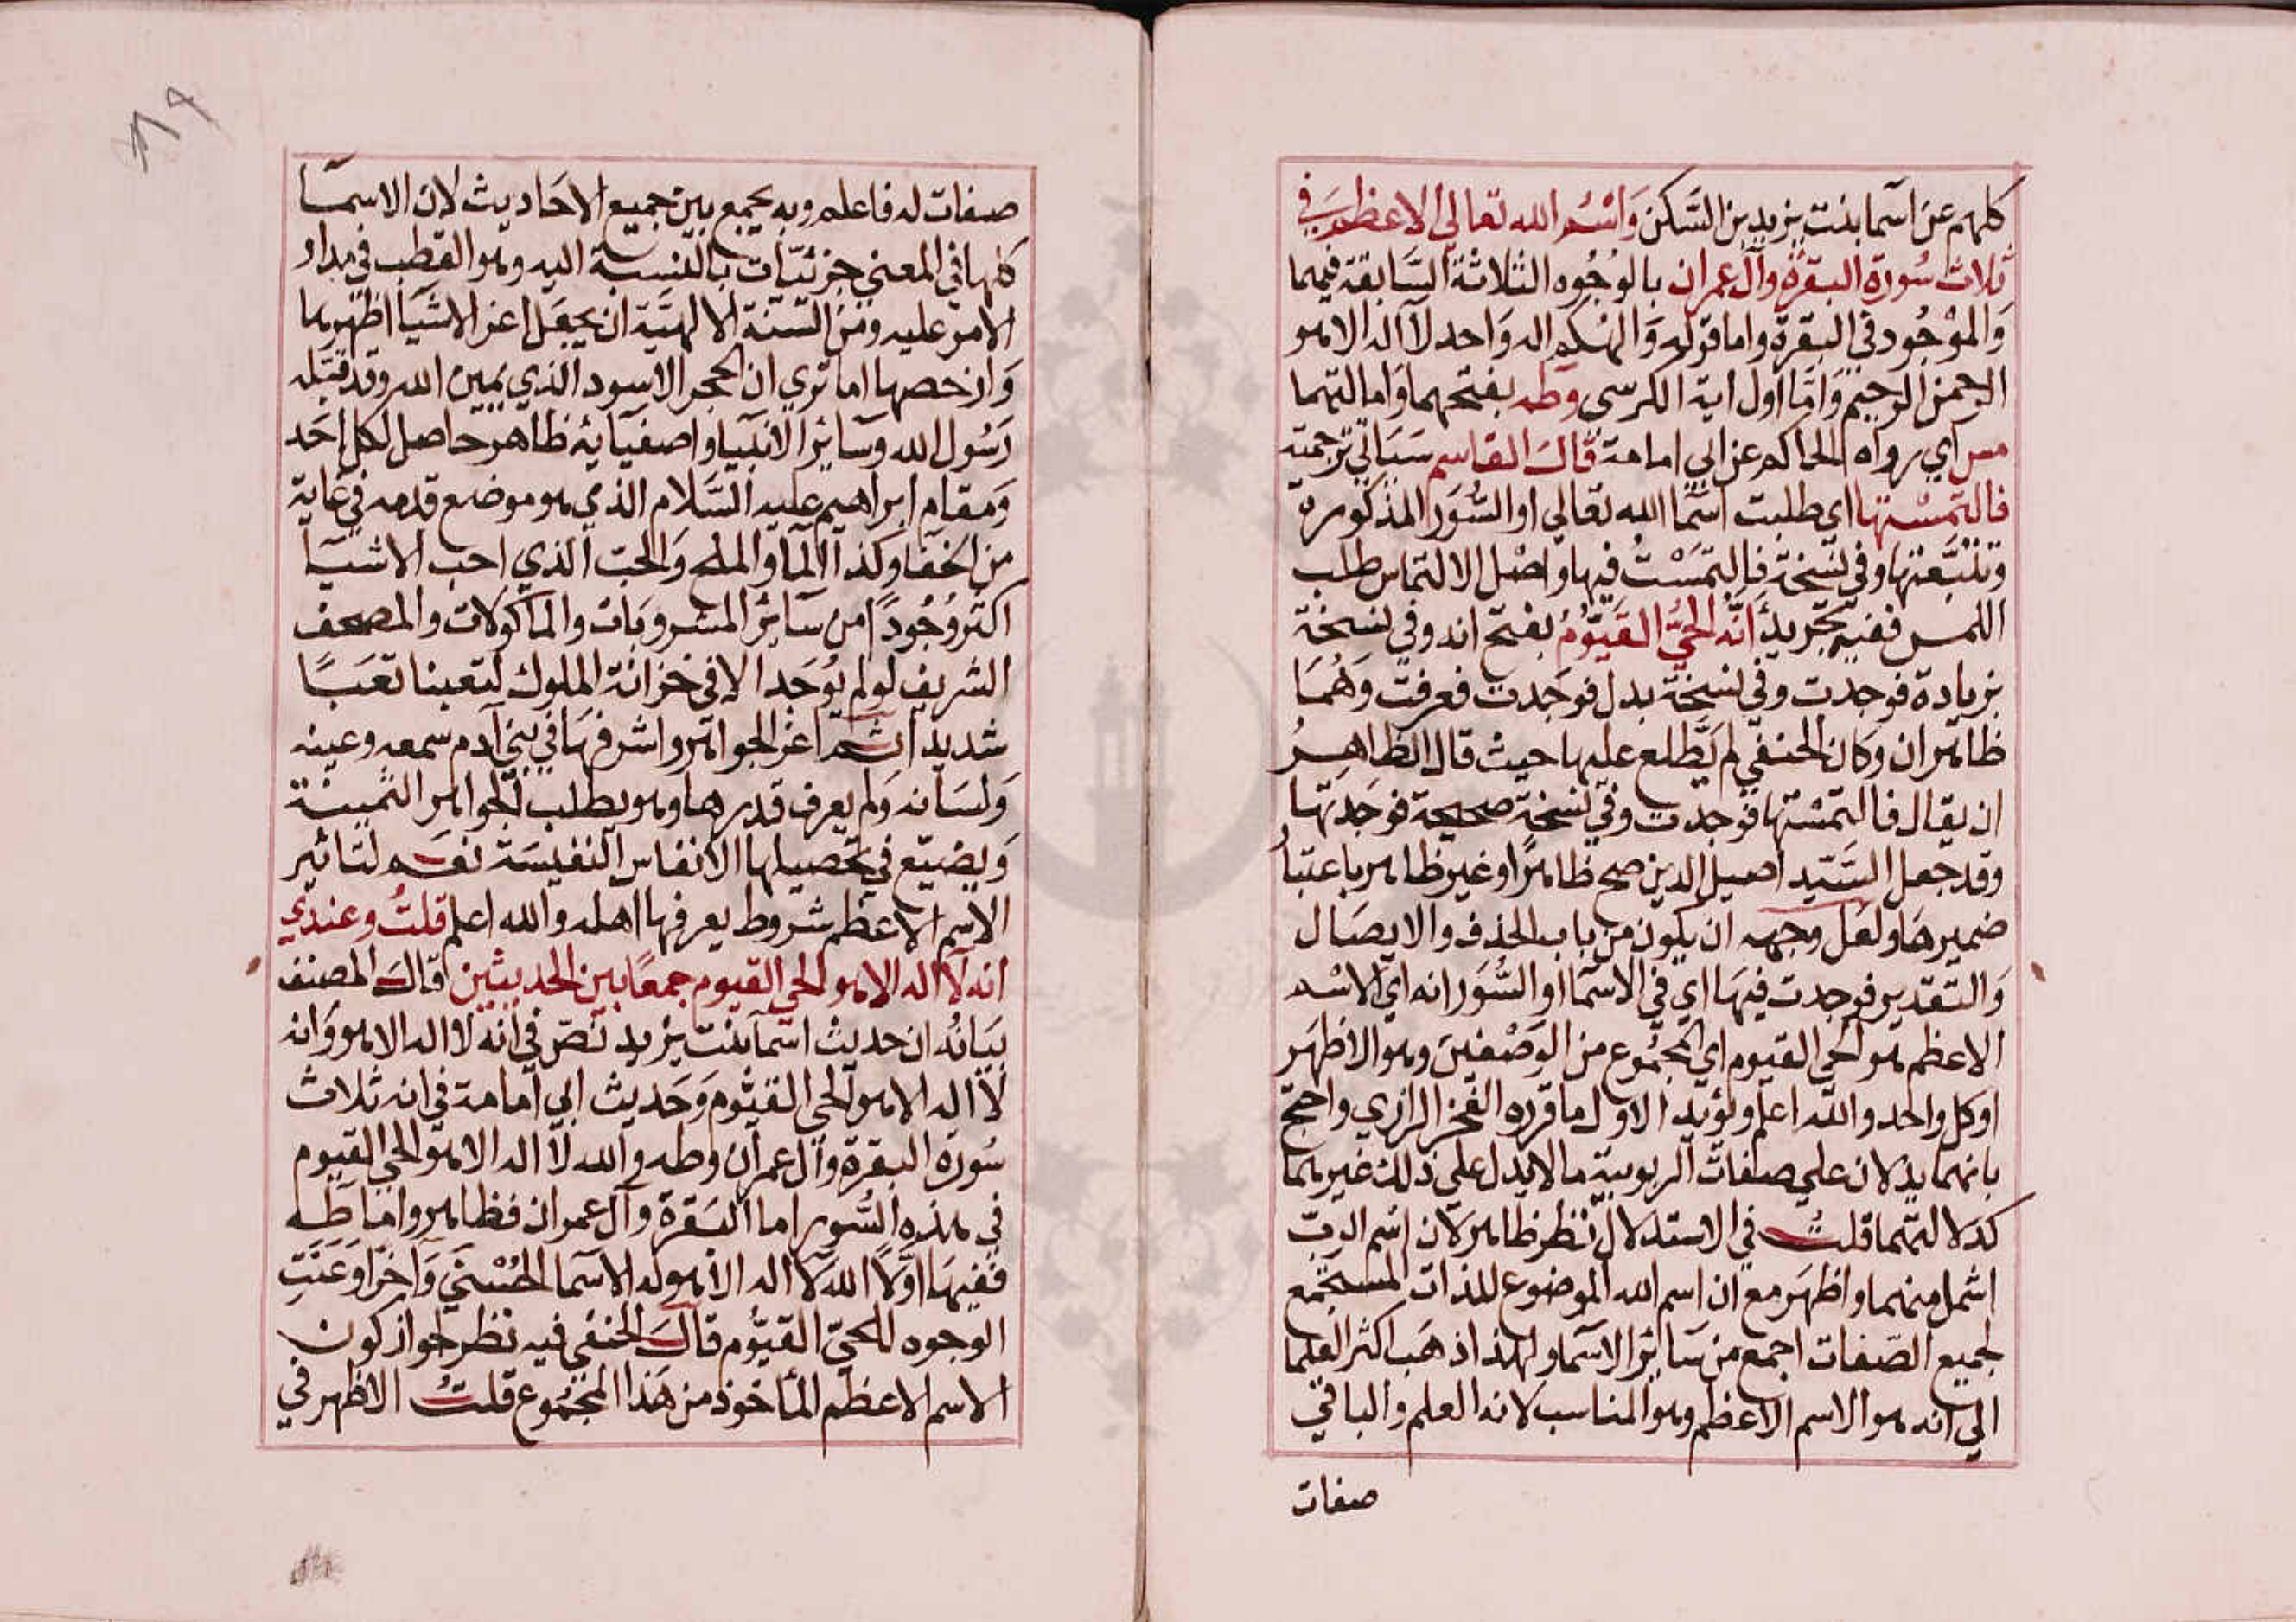 كلهم عن اسما بنت يزيد بن السكن واسم الله تعالي الاعظم في
ثلاث سورة البقرة وآل عمران بالوجوه الثلاثة السابقة فيهما
والموجود في البقرة واما قوله والهكم اله واحد لا اله الا هو
الرحمن الرحيم واما اول اية الكرسي وطه بفتحهما وامالتهما
مس اي رواه الحاكم عن ابي امامة قال القاسم سياتي ترجمته
فالتمستها اي طلبت اسما الله تعالي او السور المذكورة
وتتبعتها وفي نسخة فالتمست فيها واصل الالتماس طلب
اللمس ففيه تجريد أنه الحي القيوم بفتح انه وفي نسخة
بزيادة فوجدت وفي نسخة بدل فوجدت فعرفت وهما
ظاهران وكان الحنفي لم يطلع عليها حيث قال الظاهر
ان يقال فالتمستها فوجدت وفي نسخة صحيحة فوجدتها
وقد جعل السيد اصيل الدين صح ظاهرا وغير ظاهر باعتبار
ضميرها ولعل وجهه ان يكون من باب الحذف والايصال
والتقدير فوجدت فيها اي في الاسما او السور انه اي الاسم
الاعظم هو الحي القيوم اي المجموع من الوصفين وهو الاظهر
او كل واحد والله اعلم ويؤيد الاول ما قرره الفخر الرازي واحتج
بانهما يدلان علي صفات الربوبية ما لا يدل علي ذلك غيرهما
كدلالتهما قلت في الاستدلال نظر ظاهر لان اسم الرب
اشمل منهما واظهر مع ان اسم الله الموضوع للذات المستجمع
لجميع الصفات اجمع من سائر الاسما ولهذا ذهب اكثر العلما
الي انه هو الاسم الاعظم وهو المناسب لانه العلم والباقي
صفات
صفات له فاعلم وبه يجمع بين جميع الاحاديث لان الاسما
كلها في المعني جزئيات بالنسبة اليه وهو القطب في مدار
الامر عليه ومن السنة الالهية ان يجعل اعز الاشيا اظهرها
وارخصها اما تري ان الحجر الاسود الذي يمين الله وقد قبله
رسول الله وسائر الانبيا واصفيائه ظاهر حاصل لكل احد
ومقام ابراهيم عليه السلام الذي هو موضع قدمه في غاية
من الخفا وكذا الما والملح والحب الذي احب الاشيا
اكثر وجودا من سائر المشروبات والماكولات والمصحف
الشريف لو لم يوجد الا في خزانة الملوك لتعبنا تعبا
شديدا ثم اعز الجواهر واشرفها في بني آدم سمعه وعينه
ولسانه ولم يعرف قدرها وهو يطلب الجواهر الثمينة
ويضيع في تحصيلها الانفاس النفيسة نعم لتاثير
الاسم الاعظم شروط يعرفها اهله والله اعلم قلت وعندي
انه لا اله الا هو الحي القيوم جمعا بين الحديثين قال المصنف
بيانه ان حديث اسما بنت يزيد نص في انه لا اله الا هو وانه
لا اله الا هو الحي القيوم وحديث ابي امامة في انه ثلاث
سورة البقرة وآل عمران وطه والله لا اله الا هو الحي القيوم
في هذه السور اما البقرة وآل عمران فظاهر واما طه
ففيها اولا الله لا اله الا هو له الاسما الحسني وآخرا وعنت
الوجوه للحي القيوم قال الحنفي فيه نظر لجواز كون
الاسم الاعظم المأخوذ من هذا المجموع قلت الاظهر في